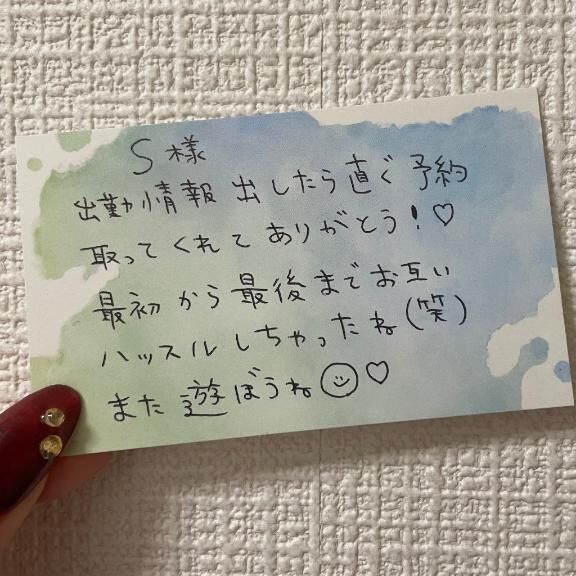 S様
出勤情報 出したら直ぐ予約
取ってくれてありがとう!♡
最初から最後までお互い
ハッスルしちゃったね(笑)
また遊ぼうね☺♡